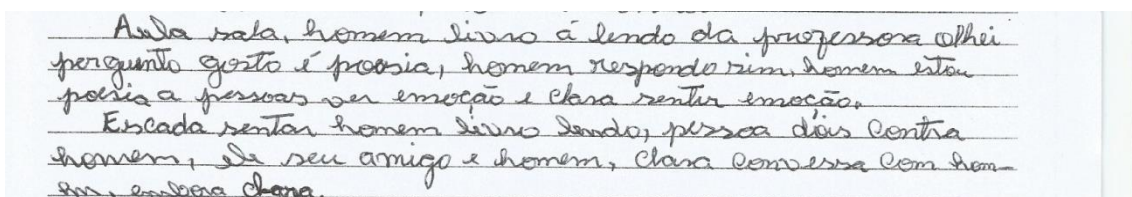 Aula sala, homem livro á lendo da professora olhei
pergunto gosto é proosia, homem respondo sim, homem estou
poesia a pessoas ver emoção e clara sentir emoção.
Escada sentar homem livro lendo, pessoa dois contra
homem, ele seu amigo e homem, clara conversa com hom-
em, embora clara.